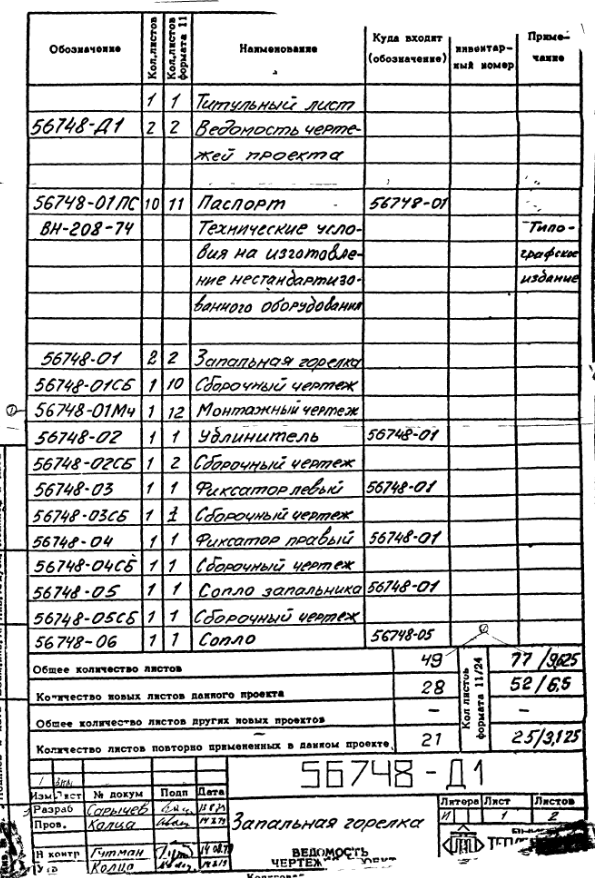 Обозначение Кол.листов Кол.листов формата 11 Наименование Куда входит (обозначение) инвентарный номер Примечание
1 1 Титульный лист
56748-Д1 2 2 Ведомость черте-
жей проекта
56748-01ПС 10 11 Паспорт 56748-01
ВН-208-74 Технические усло- Типо-
вия на изготовле- графское
ние нестандартизо- издание
ванного оборудования
56748-01 2 2 Запальная горелка
56748-01СБ 1 10 Сборочный чертеж
56748-01МЧ 1 12 Монтажный чертеж
56748-02 1 1 Удлинитель 56748-01
56748-02СБ 1 2 Сборочный чертеж
56748-03 1 1 Фиксатор левый 56748-01
56748-03СБ 1 1 Сборочный чертеж
56748-04 1 1 Фиксатор правый 56748-01
56748-04СБ 1 1 Сборочный чертеж
56748-05 1 1 Сопло запальника 56748-01
56748-05СБ 1 1 Сборочный чертеж
56748-06 1 1 Сопло 56748-05
Общее количество листов 49 Кол листов формата 11/24 77/9,625
Количество новых листов данного проекта 28 52/6,5
Общее количество листов других новых проектов - -
Количество листов повторно примененных в данном проекте 21 25/3,125
56748-Д1
Изм Лист № докум Подп Дата
Разраб Сарычев
Пров. Колца
Запальная горелка
Литера Лист Листов
И 1 2
Н контр Гутман
ВЕДОМОСТЬ